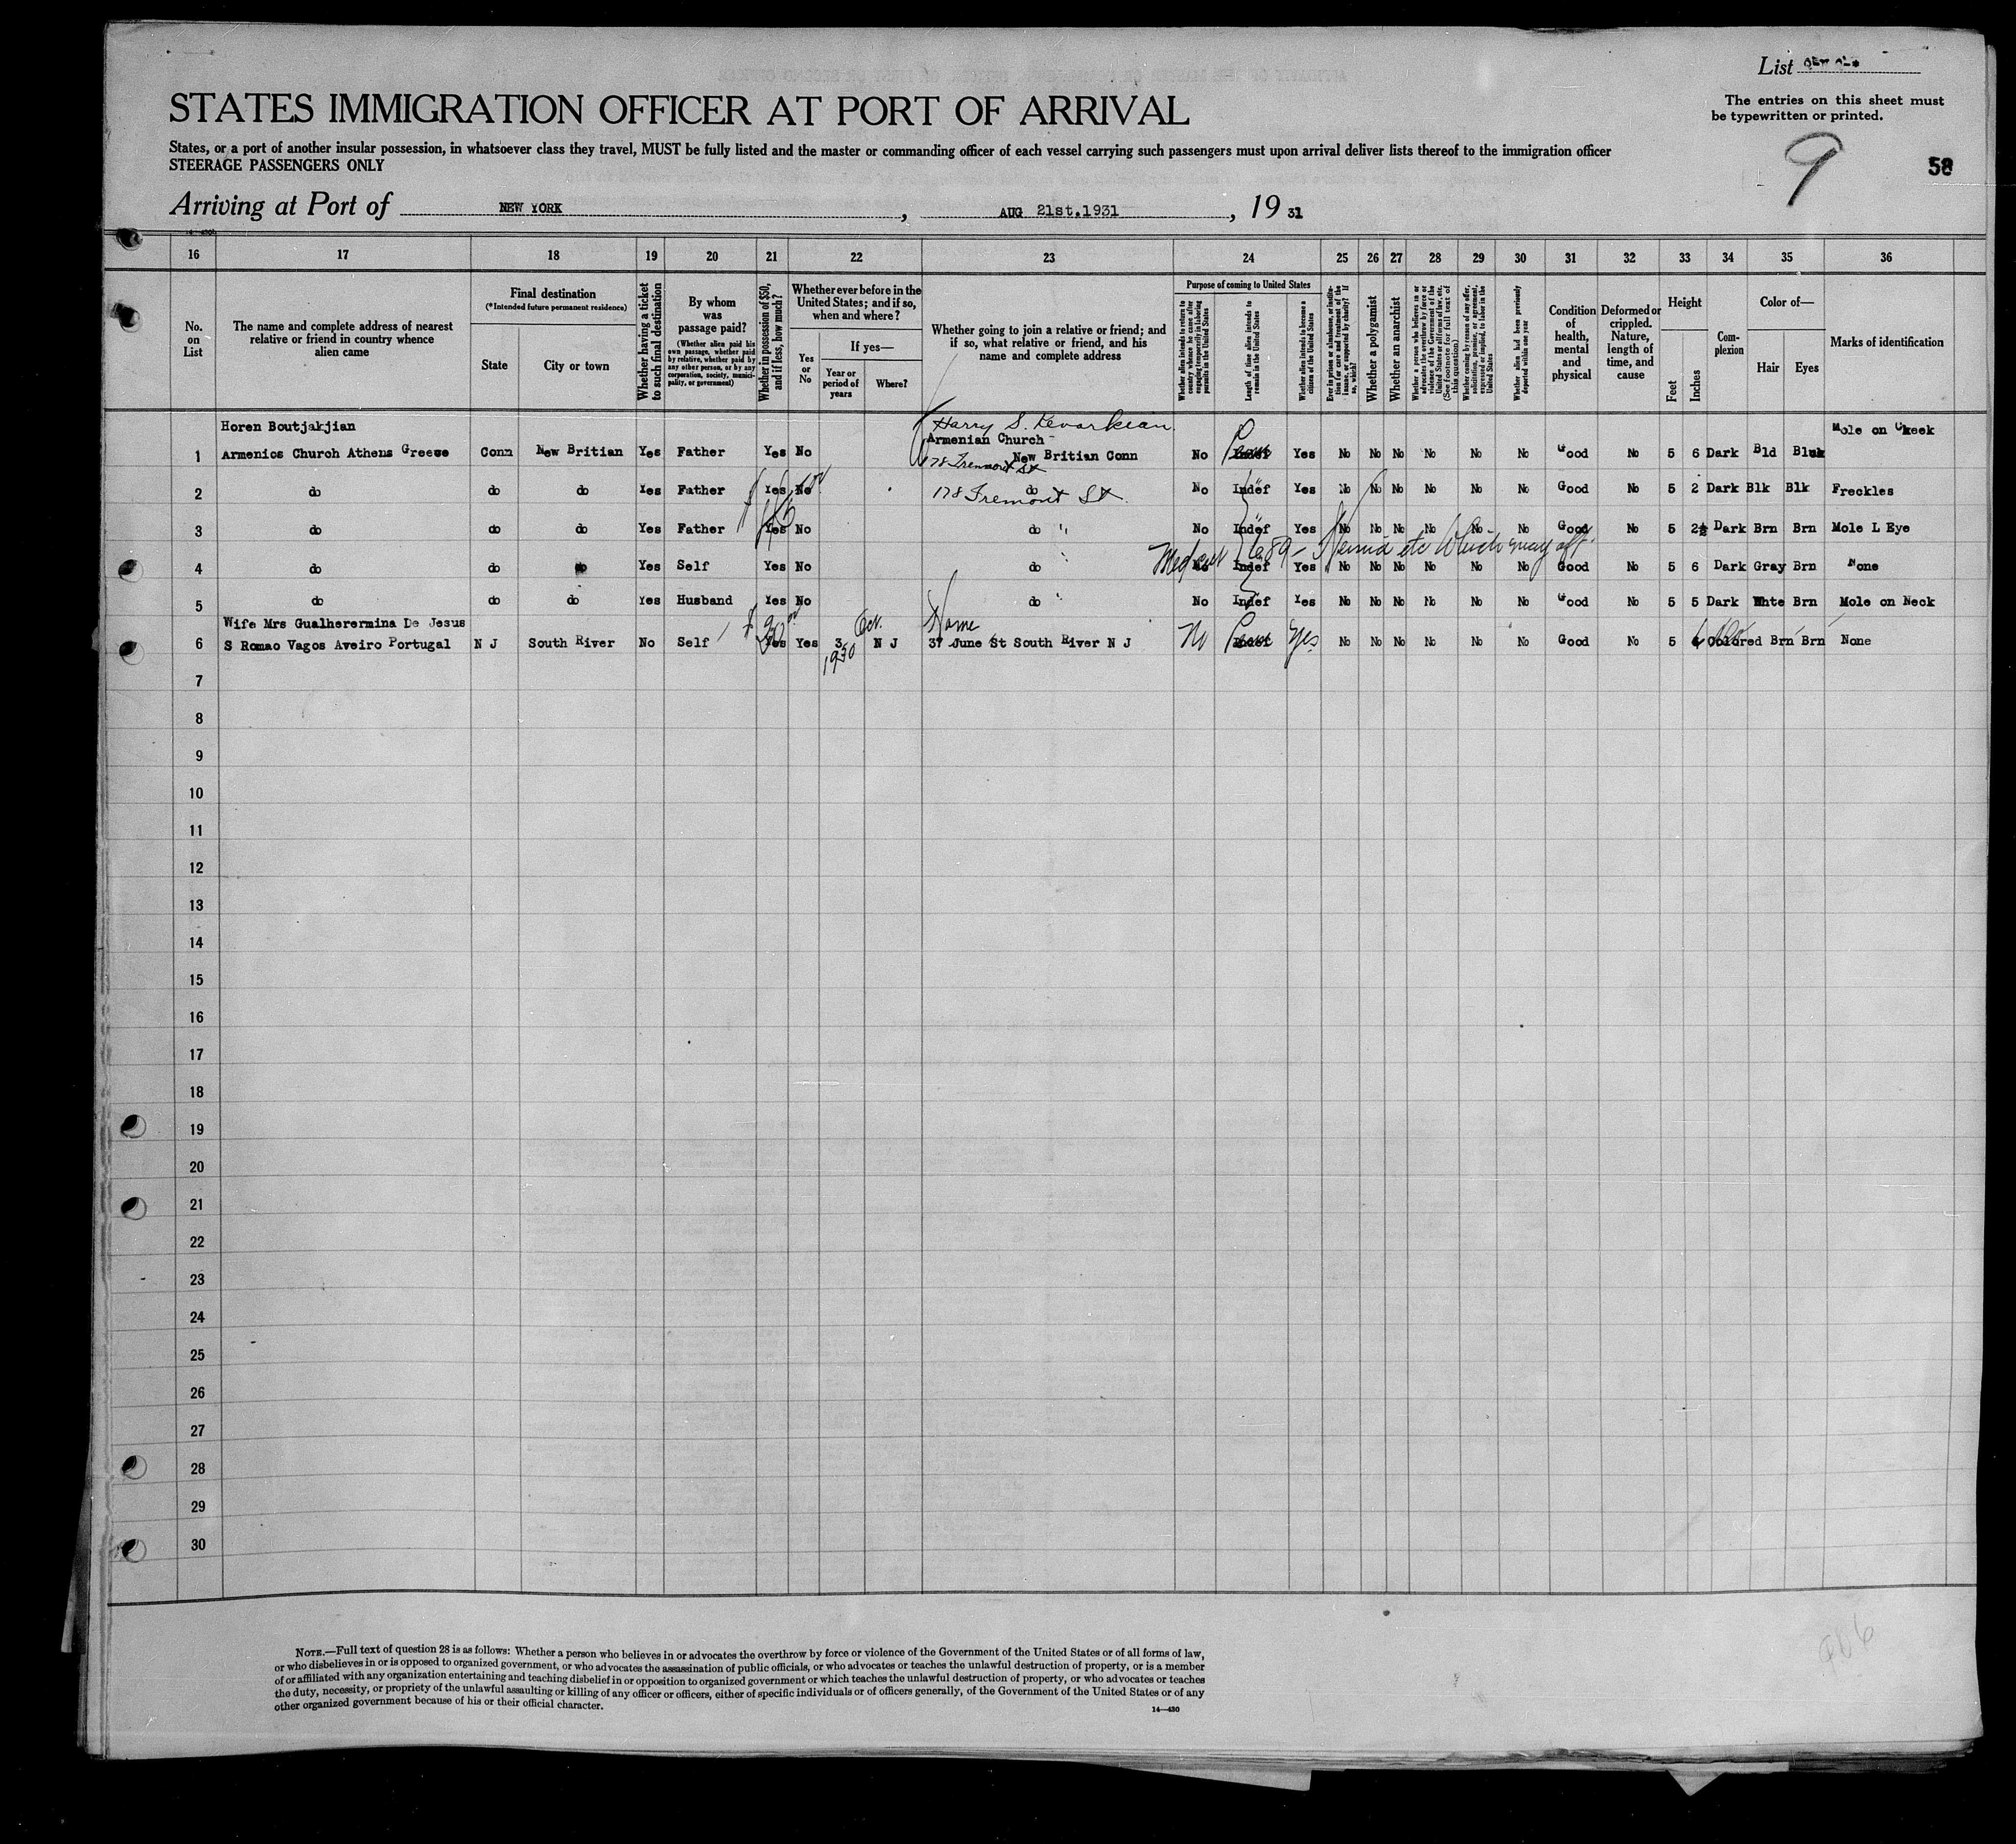 List
The entries on this sheet must
be typewritten or printed.
STATES IMMIGRATION OFFICER AT PORT OF ARRIVAL
9
58
States, or a port of another insular possession, in whatsoever class they travel, MUST be fully listed and the master or commanding officer of each vessel carrying such passengers must upon arrival deliver lists thereof to the immigration officer
STEERAGE PASSENGERS ONLY
Arriving at Port of NEW YORK, AUG 21st.1931, 19 31
16 17 18 19 20 21 22 23 24 25 26 27 28 29 30 31 32 33 34 35 36
No. on List
The name and complete address of nearest relative or friend in country whence alien came
Final destination
(*Intended future permanent residence)
State
City or town
Whether having a ticket to such final destination
By whom was passage paid?
(Whether alien paid his own passage, whether paid by relative, whether paid by any other person, or by any corporation, society, municipality, or government)
Whether in possession of $50, and if less, how much?
Whether ever before in the United States; and if so, when and where?
Yes or No
If yes—
Year or period of years
Where?
Whether going to join a relative or friend; and if so, what relative or friend, and his name and complete address
Purpose of coming to United States
Whether alien intends to return to country whence he came after engaging temporarily in laboring pursuits in the United States
Length of time alien intends to remain in the United States
Whether alien intends to become a citizen of the United States
Ever in prison or almshouse, or institution for care and treatment of the insane, or supported by charity? If so, which?
Whether a polygamist
Whether an anarchist
Whether a person who believes in or advocates the overthrow by force or violence of the Government of the United States or all forms of law, etc. (See footnote for full text of this question)
Whether coming by reason of any offer, solicitation, promise, or agreement, expressed or implied, to labor in the United States
Whether alien had been previously deported within one year
Condition of health, mental and physical
Deformed or crippled. Nature, length of time, and cause
Height
Feet
Inches
Complexion
Color of—
Hair
Eyes
Marks of identification
Horen Boutjakjian
Harry S. Kevorkian
Armenian Church
Mole on Cheek
1 Armenios Church Athens Greece Conn New Britian Yes Father Yes No New Britian Conn No Yes No No No No No No Good No 5 6 Dark Bld
178 Fremont St
2 do do do Yes Father Yes No do No Indef Yes No No No No No No Good No 5 2 Dark Blk Blk Freckles
178 Fremont St.
3 do do do Yes Father Yes No do " No Indef Yes No No No No No No Good No 5 2½ Dark Brn Brn Mole L Eye
4 do do do Yes Self Yes No do No Indef Yes No No No No No No Good No 5 6 Dark Gray Brn None
5 do do do Yes Husband Yes No do No Indef Yes No No No No No No Good No 5 5 Dark Whte Brn Mole on Neck
Wife Mrs Gualherermina De Jesus
Oct.
Home
6 S Romao Vagos Aveiro Portugal N J South River No Self Yes Yes 3 N J 37 June St South River N J No Yes No No No No No No Good No 5 Colored Brn Brn None
1930
7
8
9
10
11
12
13
14
15
16
17
18
19
20
21
22
23
24
25
26
27
28
29
30
NOTE.—Full text of question 28 is as follows: Whether a person who believes in or advocates the overthrow by force or violence of the Government of the United States or of all forms of law,
or who disbelieves in or is opposed to organized government, or who advocates the assassination of public officials, or who advocates or teaches the unlawful destruction of property, or is a member
of or affiliated with any organization entertaining and teaching disbelief in or opposition to organized government or which teaches the unlawful destruction of property, or who advocates or teaches
the duty, necessity, or propriety of the unlawful assaulting or killing of any officer or officers, either of specific individuals or of officers generally, of the Government of the United States or of any
other organized government because of his or their official character.
14—430